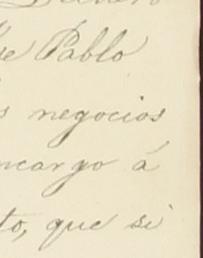 de Pablo
s negocios
ncargo á
to, que si